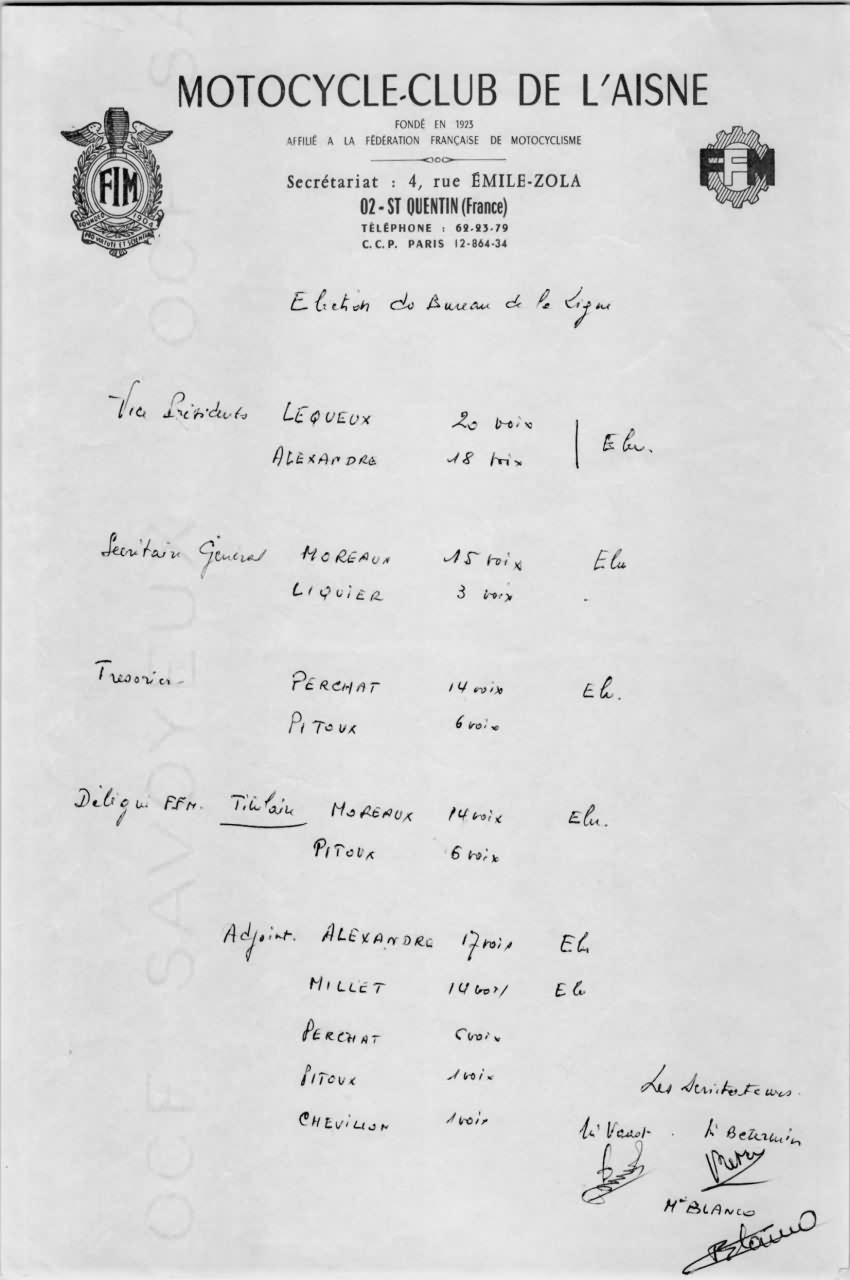 MOTOCYCLE-CLUB DE L'AISNE
FONDÉ EN 1923
AFFILIÉ A LA FÉDÉRATION FRANÇAISE DE MOTOCYCLISME
Secrétariat : 4, rue ÉMILE-ZOLA
02 - ST QUENTIN (France)
TÉLÉPHONE : 62-23-79
C.C.P. PARIS 12-864-34
FIM
FOUNDED 1904
FFM
Election du Bureau de la Ligue
Vice Présidents LEQUEUX 20 voix
ALEXANDRE 18 voix Elu.
Secrétaire Général MOREAUX 15 voix Elu
LIQUIER 3 voix
Tresorier - PERCHAT 14 voix Elu.
PITOUX 6 voix
Délégué FFM. Titulaire MOREAUX 14 voix Elu.
PITOUX 6 voix
Adjoint. ALEXANDRE 17 voix Elu
MILLET 14 voix Elu
PERCHAT voix
PITOUX 1 voix
CHEVILLON 1 voix
Les Scrutateurs.
Mr Betermin
Me BLANCO
OCF SAVOYEUX OCF SA